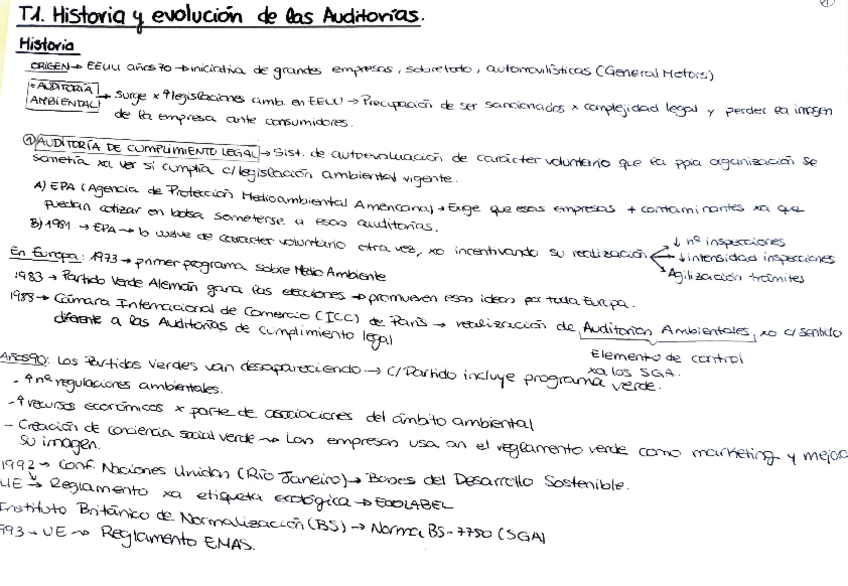 T1. Historia y evolución de las Auditorías.
Historia
ORIGEN → EEUU años 70 → iniciativa de grandes empresas, sobretodo, automovilísticas (General Motors)
AUDITORÍA AMBIENTAL → Surge x ↑ legislaciones amb. en EEUU → Precupación de ser sancionados x complejidad legal y perder la imagen
de la empresa ante consumidores.
① AUDITORÍA DE CUMPLIMIENTO LEGAL → Sist. de autoevaluación de carácter voluntario que la ppia organización se
sometía xa ver si cumplía c/ legislación ambiental vigente.
A) EPA (Agencia de Protección Medioambiental Americana) → Exige que esas empresas + contaminantes xa que
puedan cotizar en bolsa someterse a esas auditorías.
B) 1981 → EPA → lo vuelve de carácter voluntario otra vez, xo incentivando su realización
↓ nº inspecciones
↓ intensidad inspecciones
Agilización trámites
En Europa: 1973 → primer programa sobre Medio Ambiente
1983 → Partido Verde Alemán gana las elecciones → promueven esas ideas por toda Europa.
1988 → Cámara Internacional de Comercio (ICC) de París → realización de Auditorías Ambientales, xo c/ sentido
diferente a las Auditorías de cumplimiento legal
Elemento de control
xa los SGA.
Años 90: Los Partidos Verdes van desapareciendo → C/ Partido incluye programa verde.
- ↑ nº regulaciones ambientales.
- ↑ recursos económicos x parte de asociaciones del ámbito ambiental
- Creación de conciencia social verde → Las empresas usan el reglamento verde como marketing y mejora
su imagen.
1992 → Conf. Naciones Unidas (Río Janeiro) → Bases del Desarrollo Sostenible.
UE → Reglamento xa etiqueta ecológica → ECOLABEL
Instituto Británico de Normalización (BS) → Norma BS-7750 (SGA)
1993 → UE → Reglamento EMAS.